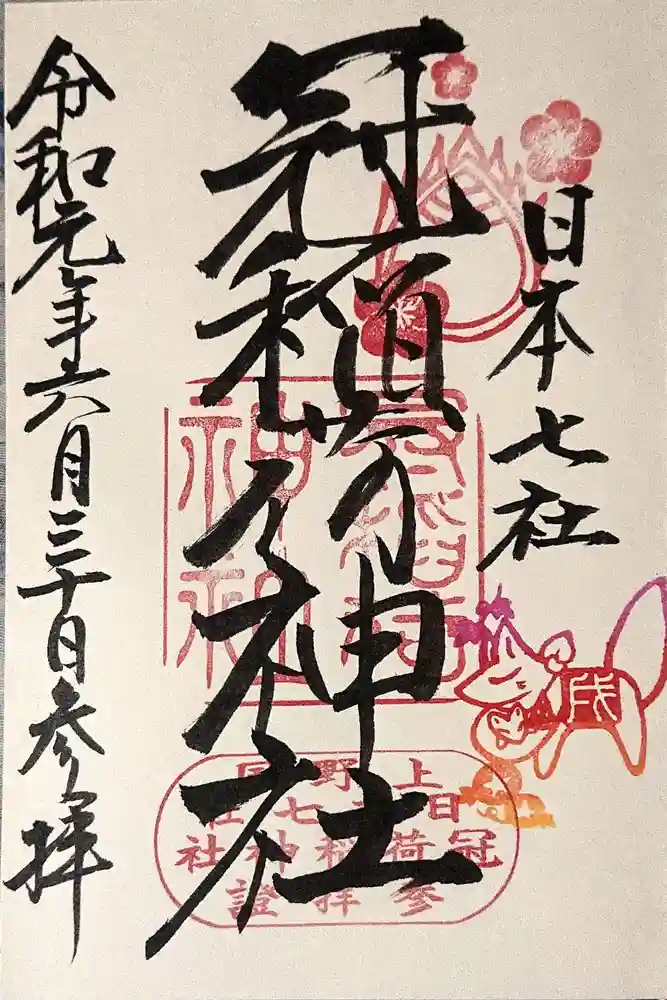 日本七社
冠稲荷神社
令和元年六月三十日参拝
冠稲荷
神社
上野国
日本七社
冠稲荷神社
参拝證